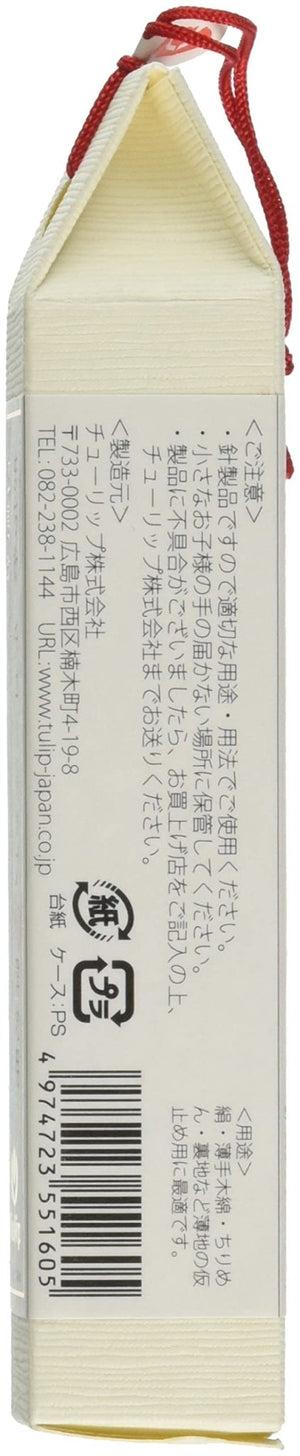 <ご注意>
・針製品ですので適切な用途・用法でご使用ください。
・小さなお子様の手の届かない場所に保管してください。
・製品に不具合がございましたら、お買上げ店をご記入の上、
チューリップ株式会社までお送りください。
<製造元>
チューリップ株式会社
〒733-0002 広島市西区楠木町4-19-8
TEL: 082-238-1144 URL:www.tulip-japan.co.jp
紙
プラ
台紙 ケース:PS
<用途>
絹・薄手木綿・ちりめ
ん・裏地など薄地の仮
止め用に最適です。
4 974723 551605